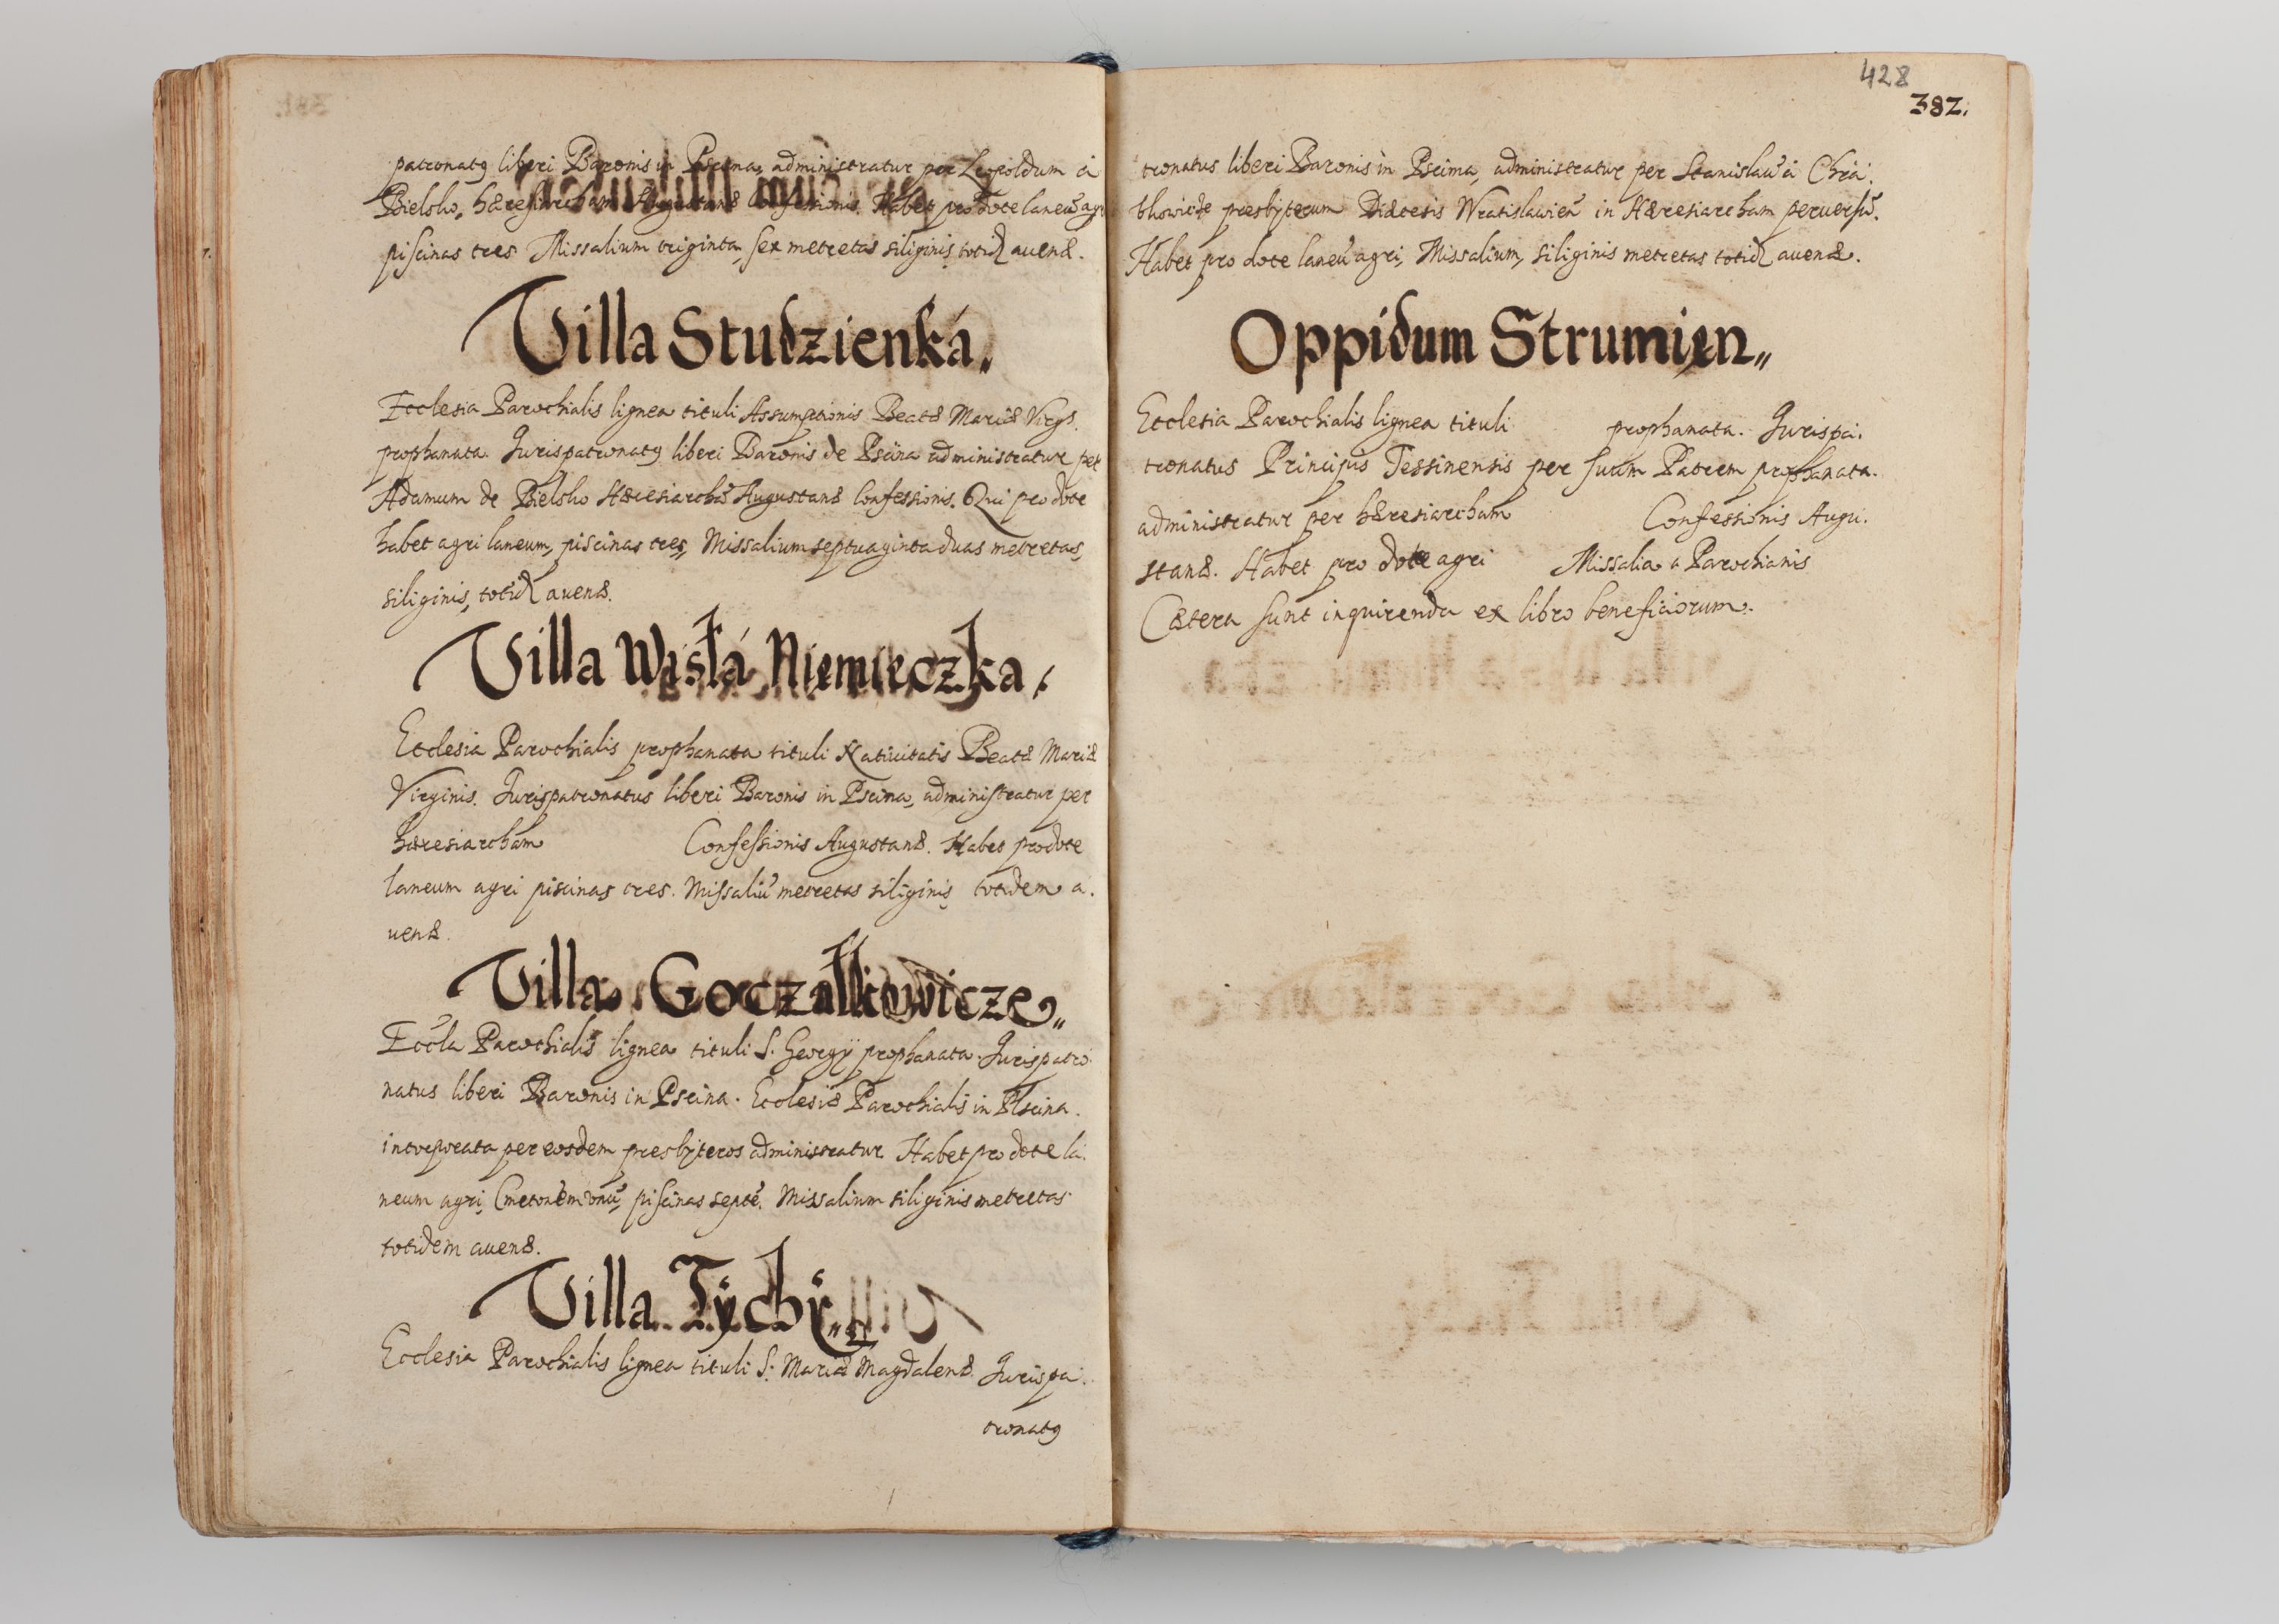 patronatꝯ liberi Baronis in Pscina, administratur per Leopoldum à
Bielsko, hæresiarcham Augustanæ Confessionis. Habet pro dote laneũ agri
piscinas tres Missalium triginta, sex metretas siliginis, totid auenæ.
Villa Studzienká„
Ecclesia Parochialis lignea tituli Assumptionis Beatæ Mariæ Virgs.
prophanata. Jurispatronatꝯ liberi Baronis de Pscina administratur per
Adamum de Bielsko Hæresiarchã Augustanæ Confessionis. Qui pro dote
habet agri laneum, piscinas tres, Missalium septuaginta duas metretas,
siliginis, totid auenæ.
Villa Wisłá Niemieczka,
Ecclesia Parochialis prophanata tituli Natiuitatis Beatæ Mariæ
Virginis. Jurispatronatus liberi Baronis in Pscina, administratur per
hæresiarcham Confessionis Augustanæ. Habet pro dote
laneum agri piscinas tres. Missaliũ metretas siliginis totidem a.
uenæ.
Villa Goczałkowicze„
Eccla Parochialis lignea tituli S. Georgij prophanata. Jurispatro
natus liberi Baronis in Pscina. Ecclesiæ Parochialis in Plscina.
intorporata per eosdem presbyteros administratur Habet pro dote la.
neum agri, Cmetonem vnũ, piscinas septẽ. Missalium siliginis metretas
totidem auenæ.
Villa Tychÿ„
Ecclesia Parochialis lignea tituli S. Mariæ Magdalenæ Jurispa.
tronatꝯ
428
382.
tronatus liberi Baronis in Pscima, administratur per Stanislaũ à Chra.
bkowicze presbyterum Diæcesis Wratislauien in Hæresiarcham peruersũ.
Habet pro dote laneũ agri, Missalium, siliginis metretas totid auenæ.
Oppidum Strumien„
Ecclesia Parochialis lignea tituli prophanata. Jurispa.
tronatus Principis Tessinensis per suum Patrem prophanata.
administratur per hæresiarcham Confessionis Augu.
stanæ. Habet pro dote agri Missalia a Parochianis
Cætera sunt inquirenda ex libro beneficiorum.